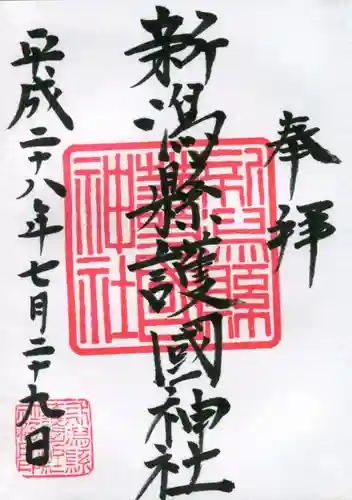 奉拝
新潟縣護國神社
平成二十八年七月二十九日
新潟縣護國神社